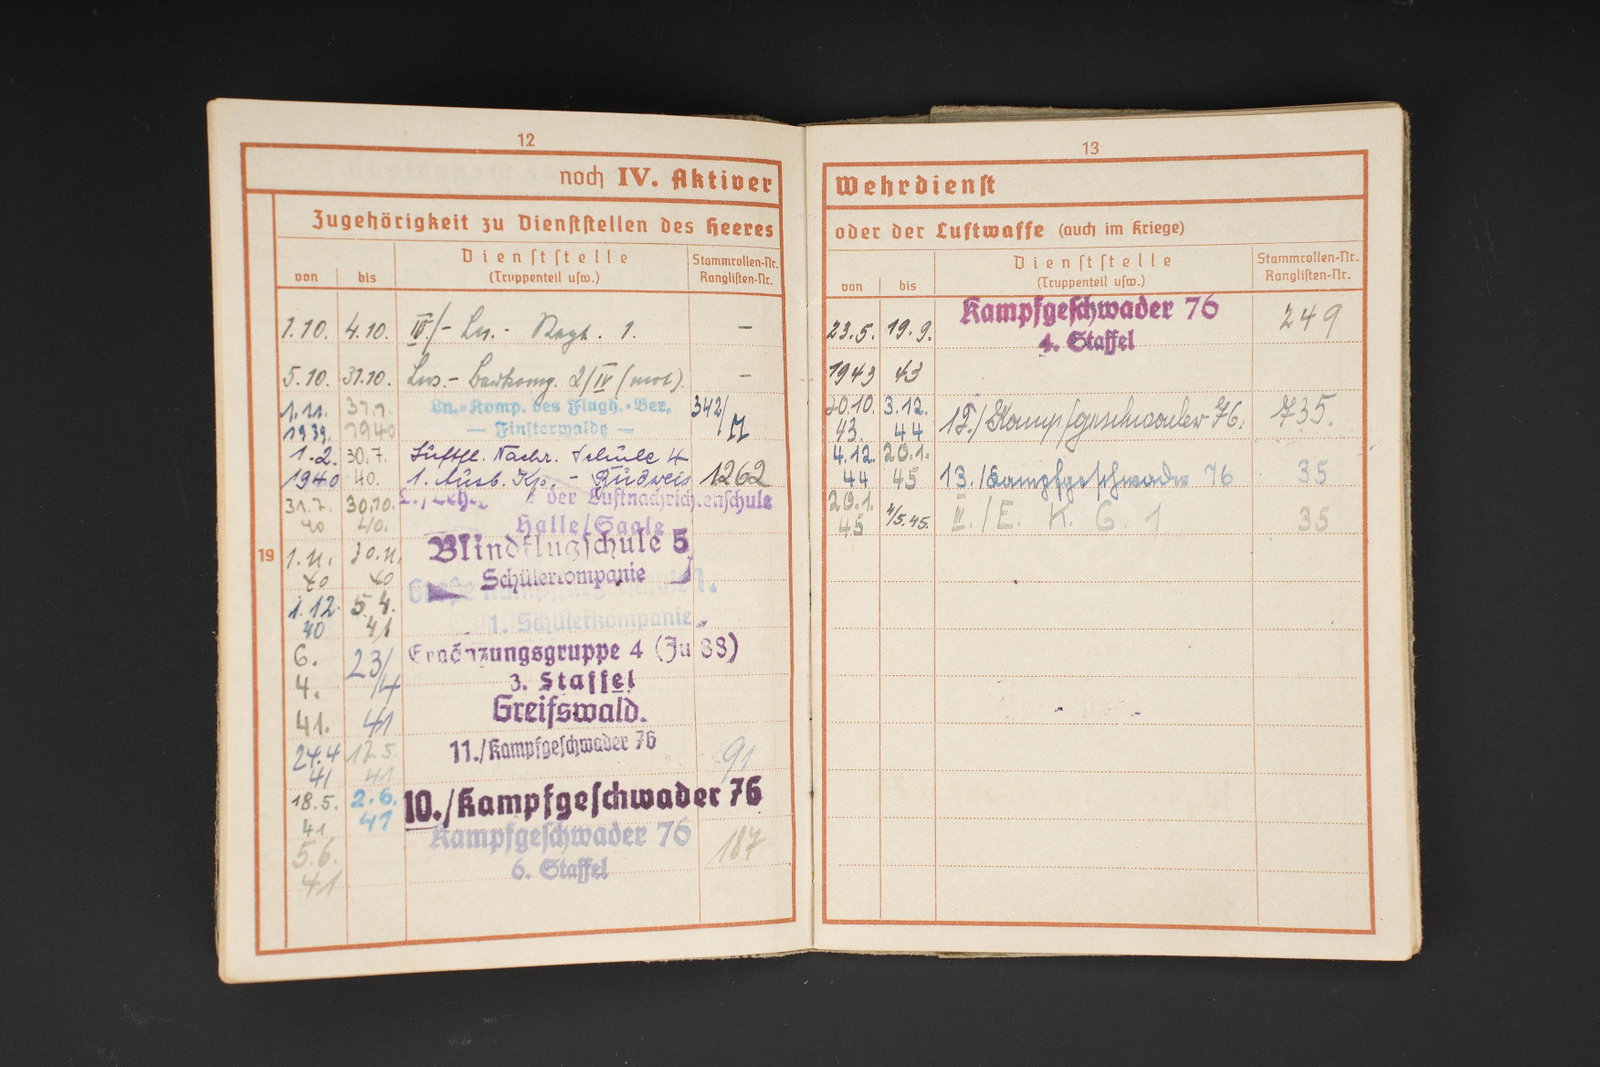 12
noch IV. Aktiver
Zugehörigkeit zu Dienststellen des Heeres
von bis Dienststelle (Truppenteil usw.) Stammrollen-Nr. Ranglisten-Nr.
1.10. 4.10. IV./- Ln.- Regt. 1. –
5.10. 31.10. Lns.- Baukomp. 2/IV (mot). –
1.11. 31.1. Ln.-Komp. des Flugh.-Ber. 342/
1939. 1940 — Finsterwalde —
1.2. 30.7. Luftfl. Nachr. Schule 4
1940 40. 1. Ausb. Kp. - Budweis 1262
31.7. 30.10. der Luftnachrichtenschule
40 40. Halle/Saale
19 1.11. 30.11. Blindflugschule 5
40 40 Schülerkompanie
1.12. 5.4.
40 41 1. Schülerkompanie
6. 23/ Ergänzungsgruppe 4 (Ju 88)
4. /4 3. Staffel
41. 41 Greifswald.
24.4 17.5. 11./Kampfgeschwader 76 91
41 41
18.5. 2.6. 10./Kampfgeschwader 76
41 41
5.6. Kampfgeschwader 76 187
41 6. Staffel
13
Wehrdienst
oder der Luftwaffe (auch im Kriege)
von bis Dienststelle (Truppenteil usw.) Stammrollen-Nr. Ranglisten-Nr.
23.5. 19.9. Kampfgeschwader 76 249
4. Staffel
1943 43
20.10. 3.12. 12./Kampfgeschwader 76. 735.
43. 44
4.12. 20.1. 13./Kampfgeschwader 76 35
44 45
20.1. 4/5.45. II./E. K. G. 1 35
45